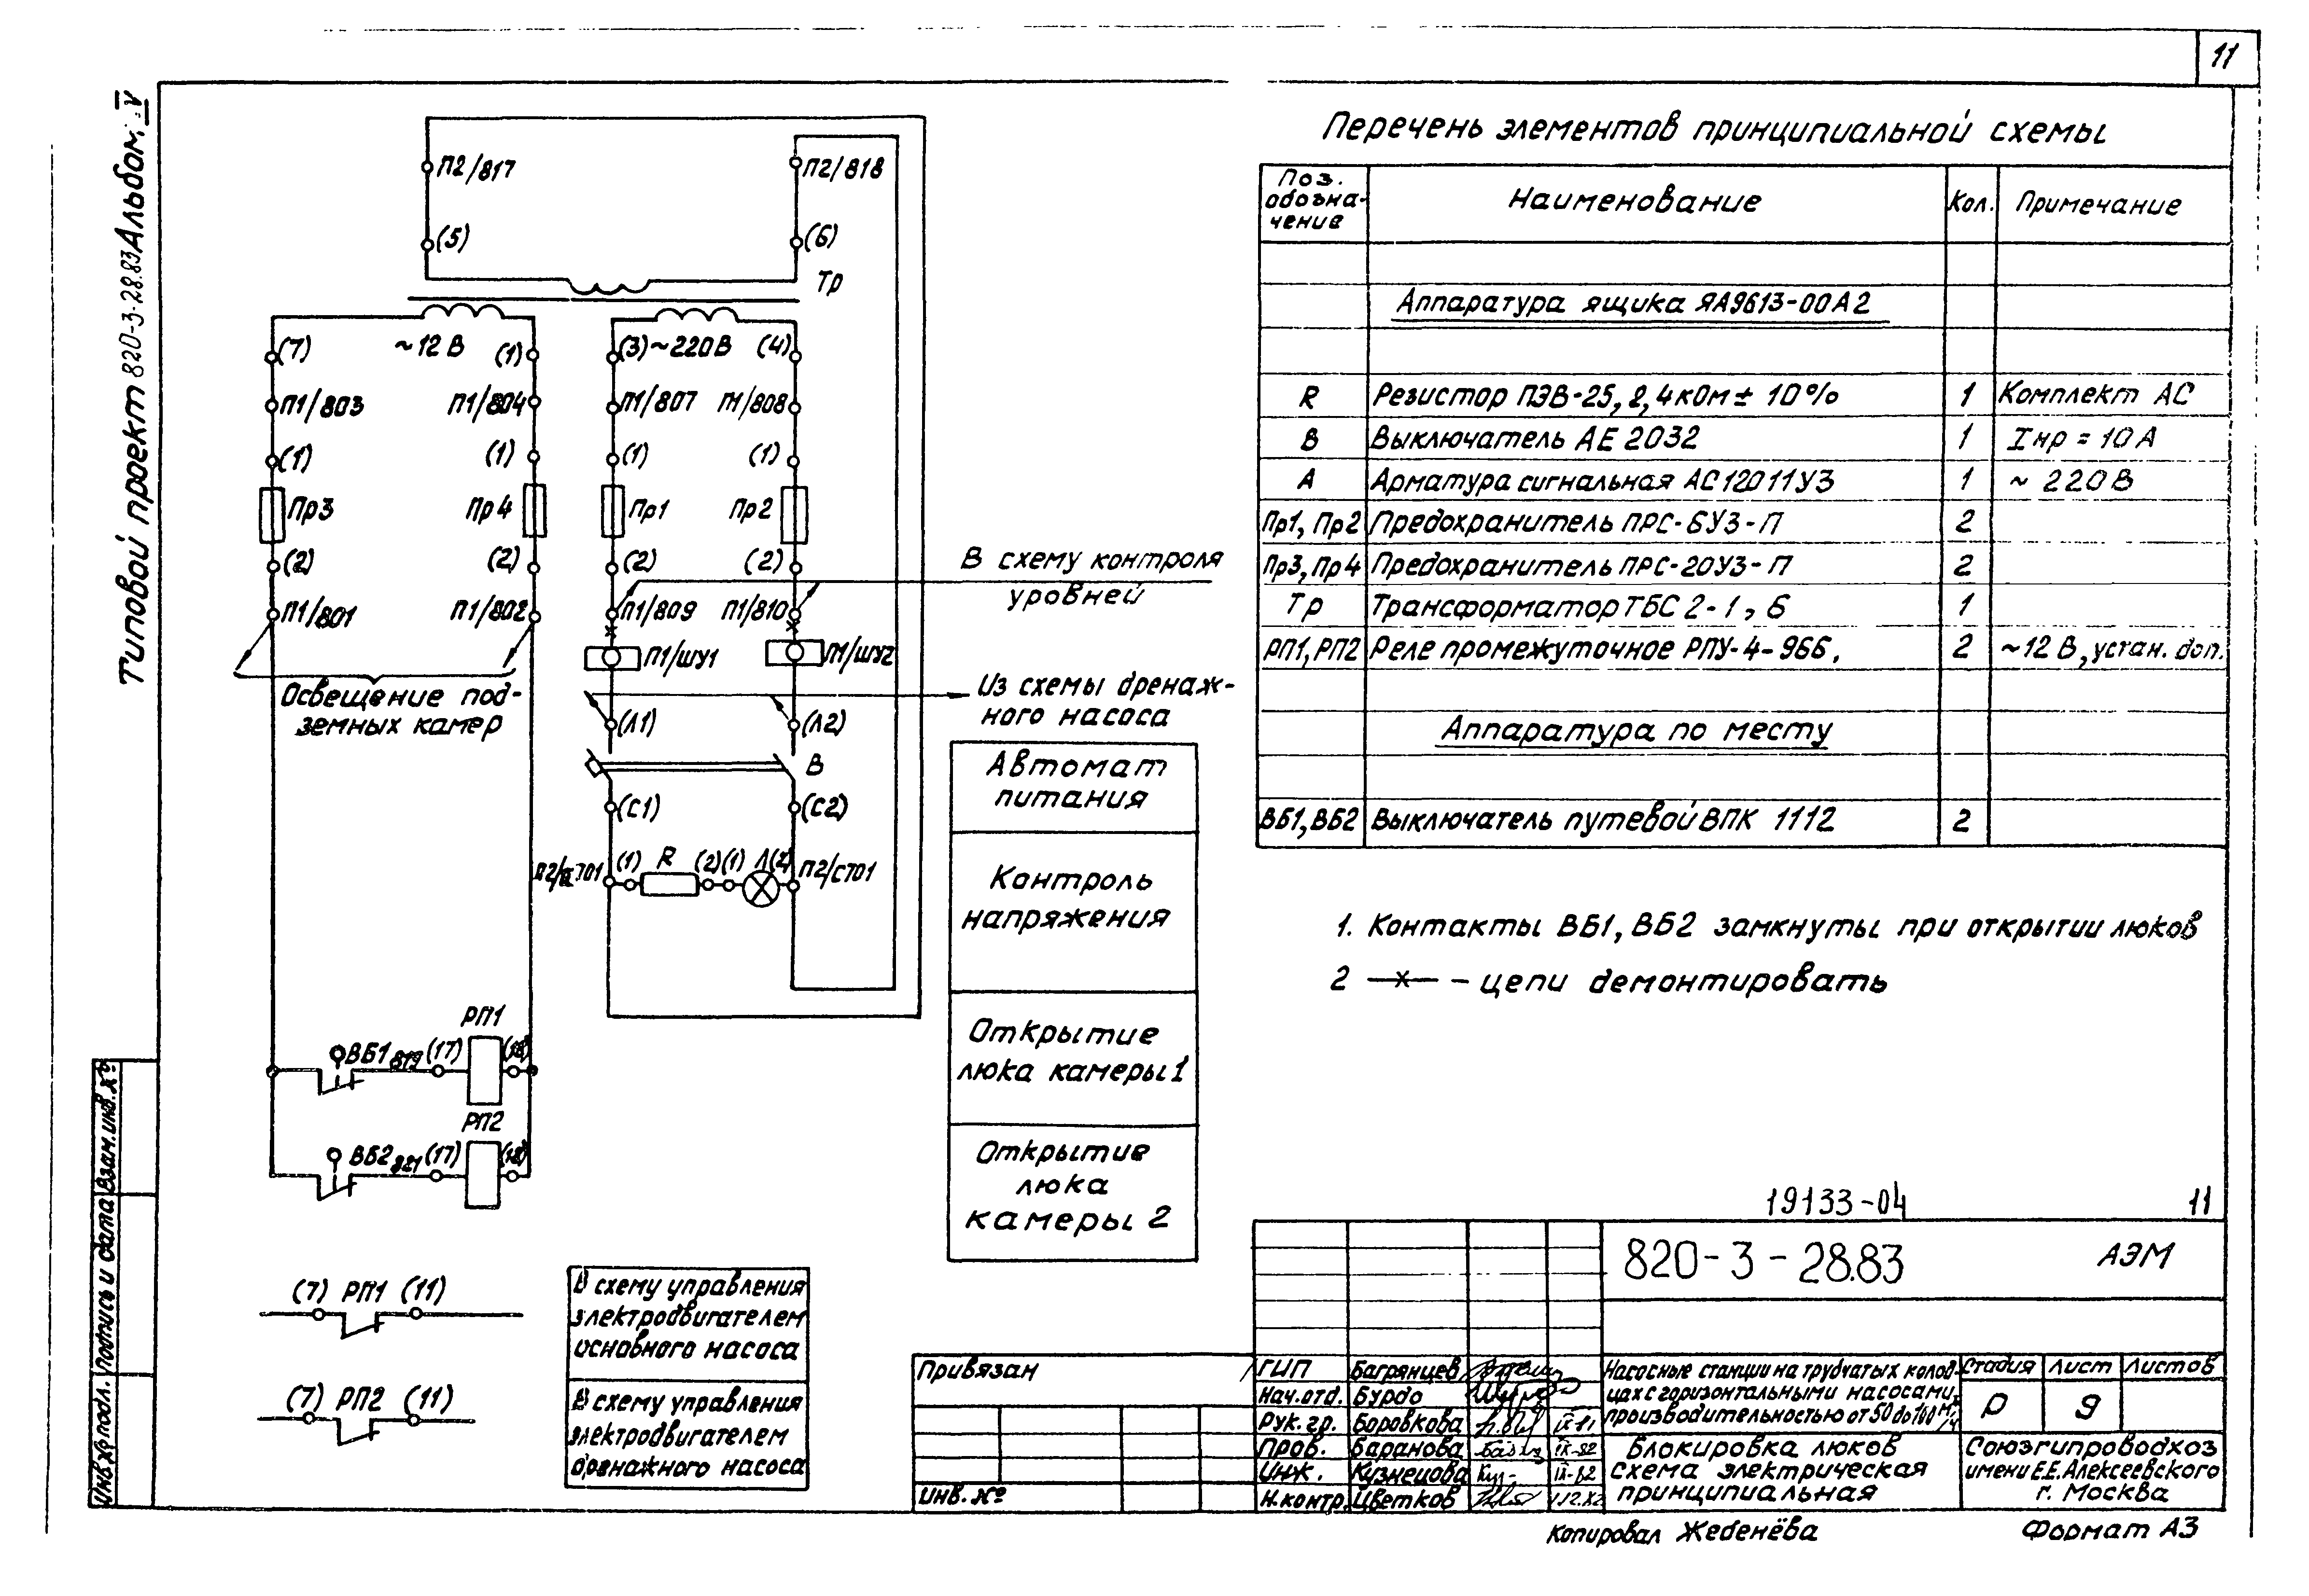 11
Типовой проект 820-3-28.83 Альбом IV
П2/817
П2/818
(5)
(6)
Тр
(7)
~12 В
(1)
(3) ~220В (4)
П1/803
П1/804
П1/807
П1/808
(1)
(1)
(1)
(1)
Пр3
Пр4
Пр1
Пр2
(2)
(2)
(2)
(2)
П1/801
П1/802
П1/809
П1/810
В схему контроля
уровней
П1/ШУ1
П1/ШУ2
Освещение под-
земных камер
Из схемы дренаж-
ного насоса
(Л1)
(Л2)
В
(С1)
(С2)
(1)
R
(2)
(1)
Л
(2)
П2/С701
РП1
ВБ1
819
(17)
(18)
РП2
ВБ2
821
(17)
(18)
Автомат
питания
Контроль
напряжения
Открытие
люка камеры 1
Открытие
люка
камеры 2
(7) РП1 (11)
(7) РП2 (11)
В схему управления
электродвигателем
основного насоса
В схему управления
электродвигателем
дренажного насоса
Перечень элементов принципиальной схемы
Поз.
обозна-
чение
Наименование
Кол.
Примечание
Аппаратура ящика ЯА9613-00А2
R Резистор ПЭВ-25, 2,4кОм ± 10% 1 Комплект АС
В Выключатель АЕ 2032 1 Iнр = 10 А
А Арматура сигнальная АС12011У3 1 ~ 220В
Пр1, Пр2 Предохранитель ПРС-6У3-П 2
Пр3, Пр4 Предохранитель ПРС-20У3-П 2
Тр Трансформатор ТБС 2-1,6 1
РП1, РП2 Реле промежуточное РПУ-4-966. 2 ~12 В, устан. доп.
Аппаратура по месту
ВБ1, ВБ2 Выключатель путевой ВПК 1112 2
1. Контакты ВБ1, ВБ2 замкнуты при открытии люков
2 —х— - цепи демонтировать
19133-04 11
820-3-28.83 АЭМ
Привязан
Инв. №
ГИП Багрянцев
Нач.отд. Бурдо
Рук. гр. Боровкова
Пров. Баранова IX-82
Инж. Кузнецова IX-82
Н.контр. Цветков
Насосные станции на трубчатых колод-
цах с горизонтальными насосами,
производительностью от 50 до 160 м³/ч
Стадия Лист Листов
Р 9
Блокировка люков
схема электрическая
принципиальная
Союзгипроводхоз
имени Е.Е. Алексеевского
г. Москва
Инв.№ подл. Подпись и дата Взам.инв.№
Копировал Жебенёва
Формат А3